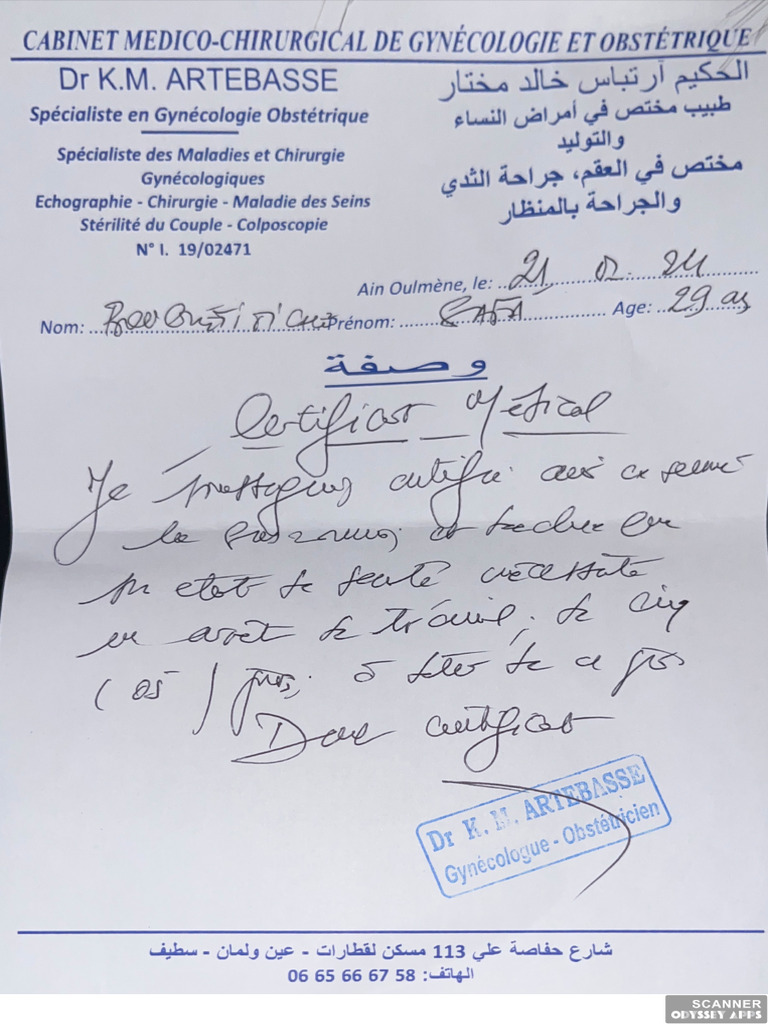 CABINET MEDICO-CHIRURGICAL DE GYNÉCOLOGIE ET OBSTÉTRIQUE
Dr K.M. ARTEBASSE
Spécialiste en Gynécologie Obstétrique
Spécialiste des Maladies et Chirurgie
Gynécologiques
Echographie - Chirurgie - Maladie des Seins
Stérilité du Couple - Colposcopie
N° I. 19/02471
الحكيم آرتباس خالد مختار
طبيب مختص في أمراض النساء
والتوليد
مختص في العقم، جراحة الثدي
والجراحة بالمنظار
Ain Oulmène, le: 21 02 24
Nom: Prénom: SAFA Age: 29 ans
وصفة
Certificat Médical
Je certifie
la et
son etat de santé nécessite
un arrêt de travail, de cinq
(05) jours, à dater de ce jour
Dont certificat
Dr K. M. ARTEBASSE
Gynécologue - Obstétricien
شارع حفاصة علي 113 مسكن لقطارات - عين ولمان - سطيف
الهاتف: 06 65 66 67 58
SCANNER
ODYSSEY APPS